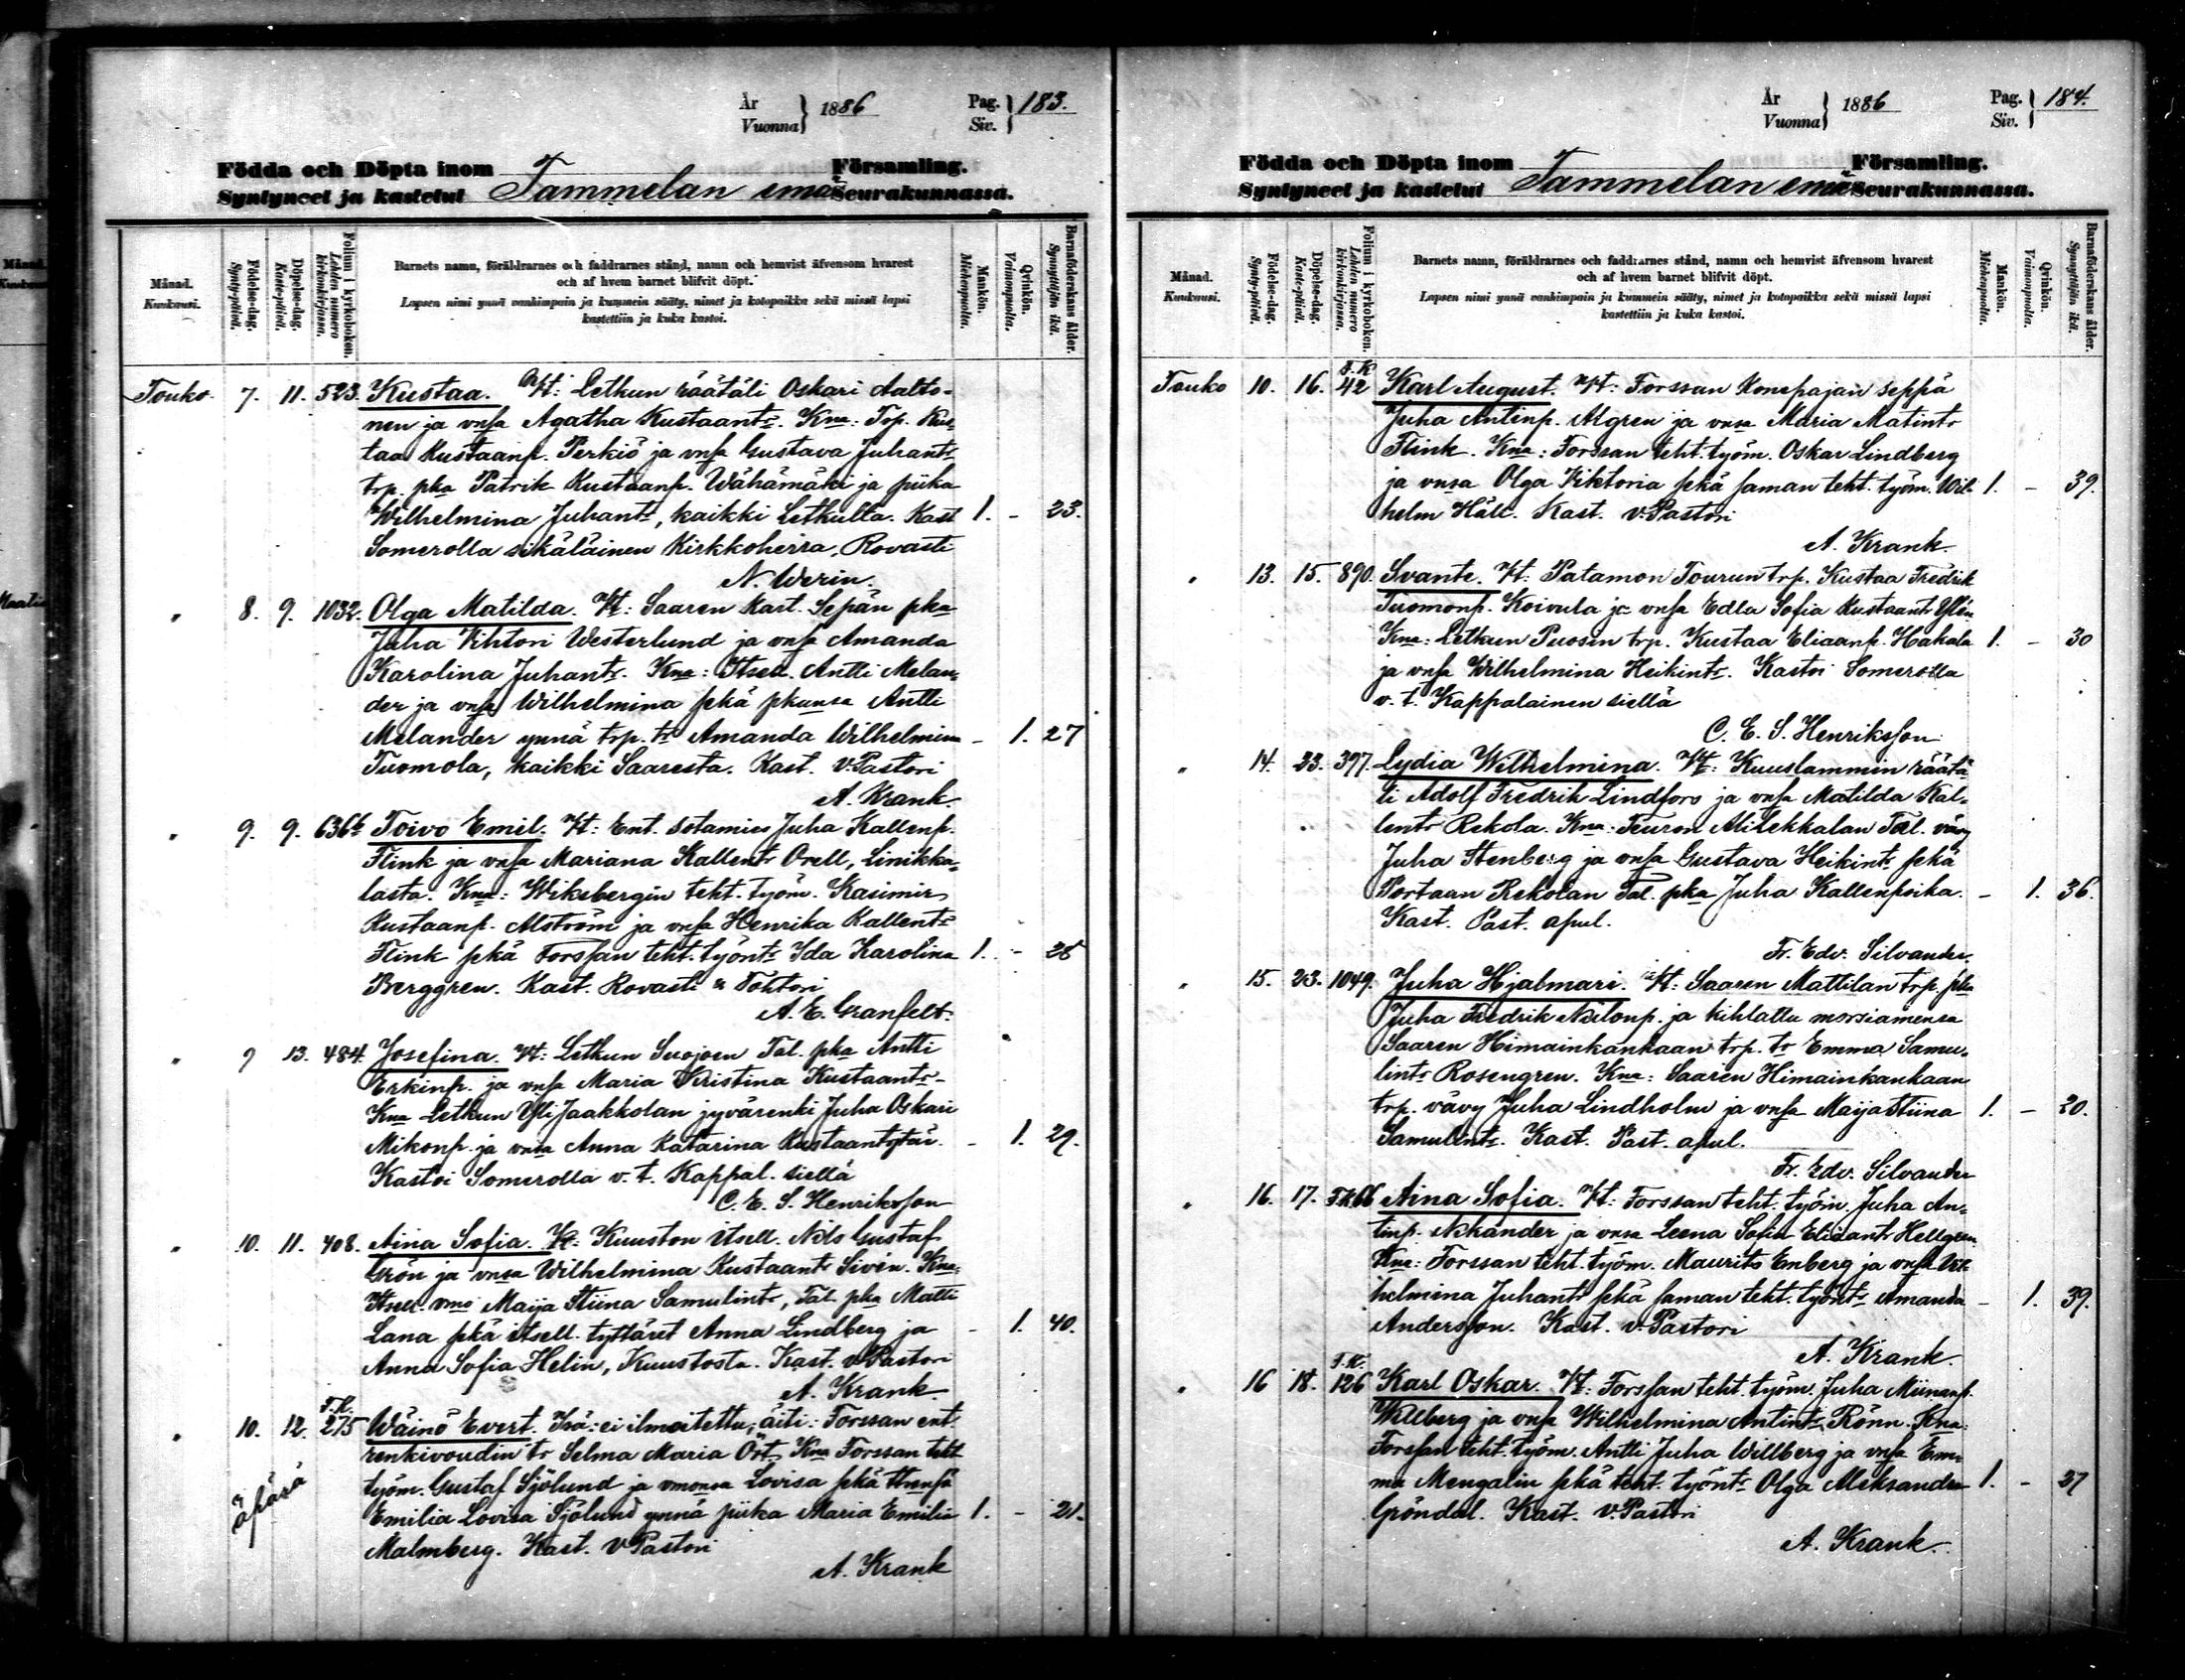 År
Vuonna } 1886 Pag.
Siv. } 183.
Födda och Döpta inom Församling.
Syntyneet ja kastetut Tammelan emä Seurakunnassa.
Månad.
Kuukausi.
Födelse-dag.
Synty-päivä.
Döpelse-dag.
Kaste-päivä.
Folium i kyrkoboken.
Lehden numero kirkonkirjassa.
Barnets namn, föräldrarnes och faddrarnes stånd, namn och hemvist äfvensom hvarest
och af hvem barnet blifvit döpt.
Lapsen nimi ynnä vanhimpain ja kummein sääty, nimet ja kotopaikka sekä missä lapsi
kastettiin ja kuka kastoi.
Mankön.
Miehenpuolta.
Qvinkön.
Vaimonpuolta.
Barnaföderskans ålder.
Synnyttäjän ikä.
Touko 7. 11. 523. Kustaa. Vt: Letkun räätäli Oskari Aalto-
nen ja vnsa Agatha Kustaantr. Kna: Trp. Kus-
taa Kustaanp. Perkiö ja vnsa Gustava Juhantr
trp. pka Patrik Kustaanp. Wähämäki ja piika
Wilhelmina Juhantr, kaikki Letkulta. Kast 1. - 23.
Somerolla sikäläinen Kirkkoherra, Rovasti
N. Werin.
" 8. 9. 1032. Olga Matilda. Vt: Saaren Kart. Sepän pka
Juha Vihtori Westerlund ja vnsa Amanda
Karolina Juhantr. Kna: Itsell. Antti Melan-
der ja vnsa Wilhelmina sekä pkansa Antti
Melander ynnä trp. tr Amanda Wilhelmina - 1. 27
Tuomola, kaikki Saaresta. Kast. v. Pastori
A. Krank.
" 9. 9. 636b Toivo Emil. Vt: Ent. sotamies Juha Kallenp.
Flink ja vnsa Mariana Kallentr Orell, Linikka-
lasta. Kna: Wiksbergin teht. työm. Kasimir
Kustaanp. Alström ja vnsa Henrika Kallentr
Flink sekä Forssan teht. työntr Ida Karolina 1. - 28
Berggren. Kast. Rovasti & Tohtori
A. E. Granfelt.
" 9 13. 484. Josefina. Vt: Letkun Suojoen Tal. pka Antti
Erkinp. ja vnsa Maria Kristina Kustaantr.
Kna Letkun Yli Jaakkolan jyvärenki Juha Oskari
Mikonp. ja vnsa Anna Katarina Kustaantytär. - 1. 29.
Kastoi Somerolla v. t. Kappal. siellä
C. E. S. Henriksson
" 10. 11. 408. Aina Sofia. Vt: Kuuston itsell. Nils Gustaf
Grön ja vnsa Wilhelmina Kustaantr Sivén. Kna:
Itsell. vmo Maija Stiina Samulintr, Tal. pka Matti
Lana sekä itsell. tyttäret Anna Lindberg ja - 1. 40.
Anna Sofia Helin, Kuustosta. Kast. v Pastori
A. Krank
" 10. 12. T.K. 275 Wäinö Evert. Isä: ei ilmoitettu; äiti: Forssan ent.
äpärä
renkivoudin tr Selma Maria Ört. Kna Forssan teht
työm. Gustaf Sjölund ja vmonsa Lovisa sekä ttrensä
Emilia Lovisa Sjölund ynnä piika Maria Emilia 1. - 21.
Malmberg. Kast. v Pastori
A. Krank
År
Vuonna } 1886 Pag.
Siv. } 184.
Födda och Döpta inom Församling.
Syntyneet ja kastetut Tammelan emä Seurakunnassa.
Månad.
Kuukausi.
Födelse-dag.
Synty-päivä.
Döpelse-dag.
Kaste-päivä.
Folium i kyrkoboken.
Lehden numero kirkonkirjassa.
Barnets namn, föräldrarnes och faddrarnes stånd, namn och hemvist äfvensom hvarest
och af hvem barnet blifvit döpt.
Lapsen nimi ynnä vanhimpain ja kummein sääty, nimet ja kotopaikka sekä missä lapsi
kastettiin ja kuka kastoi.
Mankön.
Miehenpuolta.
Qvinkön.
Vaimonpuolta.
Barnaföderskans ålder.
Synnyttäjän ikä.
Touko 10. 16. T.K 42 Karl August. Vt: Forssan Konepajan seppä
Juha Antinp. Algren ja vnsa Maria Matintr
Flink. Kna: Forssan teht. työm. Oskar Lindberg
ja vnsa Olga Viktoria sekä saman teht. työm. Wil- 1. - 39.
helm Häll. Kast. v. Pastori
A. Krank.
" 13. 15. 890. Svante. Vt: Patamon Tourun trp. Kustaa Fredrik
Tuomonp. Koivula ja vnsa Edla Sofia Kustaantr Ylén
Kna: Letkun Puosin trp. Kustaa Eliaanp. Hakala 1. - 30
ja vnsa Wilhelmina Heikintr. Kastoi Somerolla
v. t. Kappalainen siellä
C. E. S. Henriksson
" 14. 23. 397. Lydia Wilhelmina. Vt: Kuuslammin räätä-
li Adolf Fredrik Lindfors ja vnsa Matilda Kal-
lentr Rekola. Kna: Teuron Alilekkalan Tal. vävy
Juha Stenberg ja vnsa Gustava Heikintr sekä
Portaan Rekolan Tal. pka Juha Kallenpoika. - 1. 36.
Kast. Past. apul.
Fr. Edv. Silvander.
" 15. 23. 1049. Juha Hjalmari. Vt: Saaren Mattilan trp. pka
Juha Fredrik Niilonp. ja kihlattu morsiamensa
Saaren Himainkankaan trp. tr Emma Samu-
lintr Rosengren. Kna: Saaren Himainkankaan
trp. vävy Juha Lindholm ja vnsa Maija Stiina 1. - 20.
Samulintr. Kast. Past. apul.
Fr. Edv. Silvander
" 16. 17. T.K 66 Aina Sofia. Vt: Forssan teht. työm. Juha An-
tinp. Nikander ja vnsa Leena Sofia Eliaantr Hellgren.
Kna: Forssan teht. työm. Maurits Enberg ja vnsa Vil-
helmina Juhantr sekä saman teht. työntr Amanda - 1. 39.
Andersson. Kast. v. Pastori
A. Krank.
" 16 18. T.K. 126 Karl Oskar. Vt: Forssan teht. työm. Juha Miinanp.
Willberg ja vnsa Wilhelmina Antintr Rönn. Kna:
Forssan teht. työm. Antti Juha Willberg ja vnsa Em-
ma Mengalin sekä teht. työntr Olga Aleksandra 1. - 27
Gröndal. Kast. v. Pastori
A. Krank.